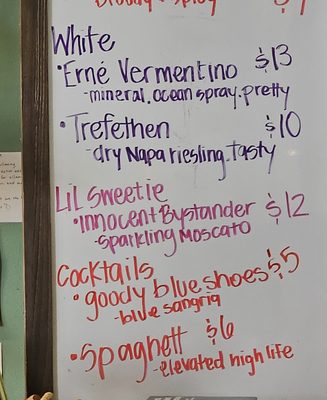 White
• Erné Vermentino $13
-mineral. ocean spray. pretty
• Trefethen $10
-dry Napa riesling. tasty
Lil Sweetie
• Innocent Bystander $12
-sparkling Moscato
Cocktails
• goody blue shoes $5
-blue sangria
• Spaghett $6
-elevated high life